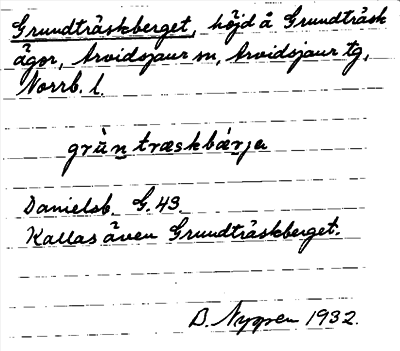 Grundträskberget, höjd å Grundträsk
ägor, Arvidsjaur sn, Arvidsjaur tg,
Norrb. l.
grùntræskbærja
Danielsb. G. 43.
Kallas även Grundträskberget.
D. Nygren 1932.